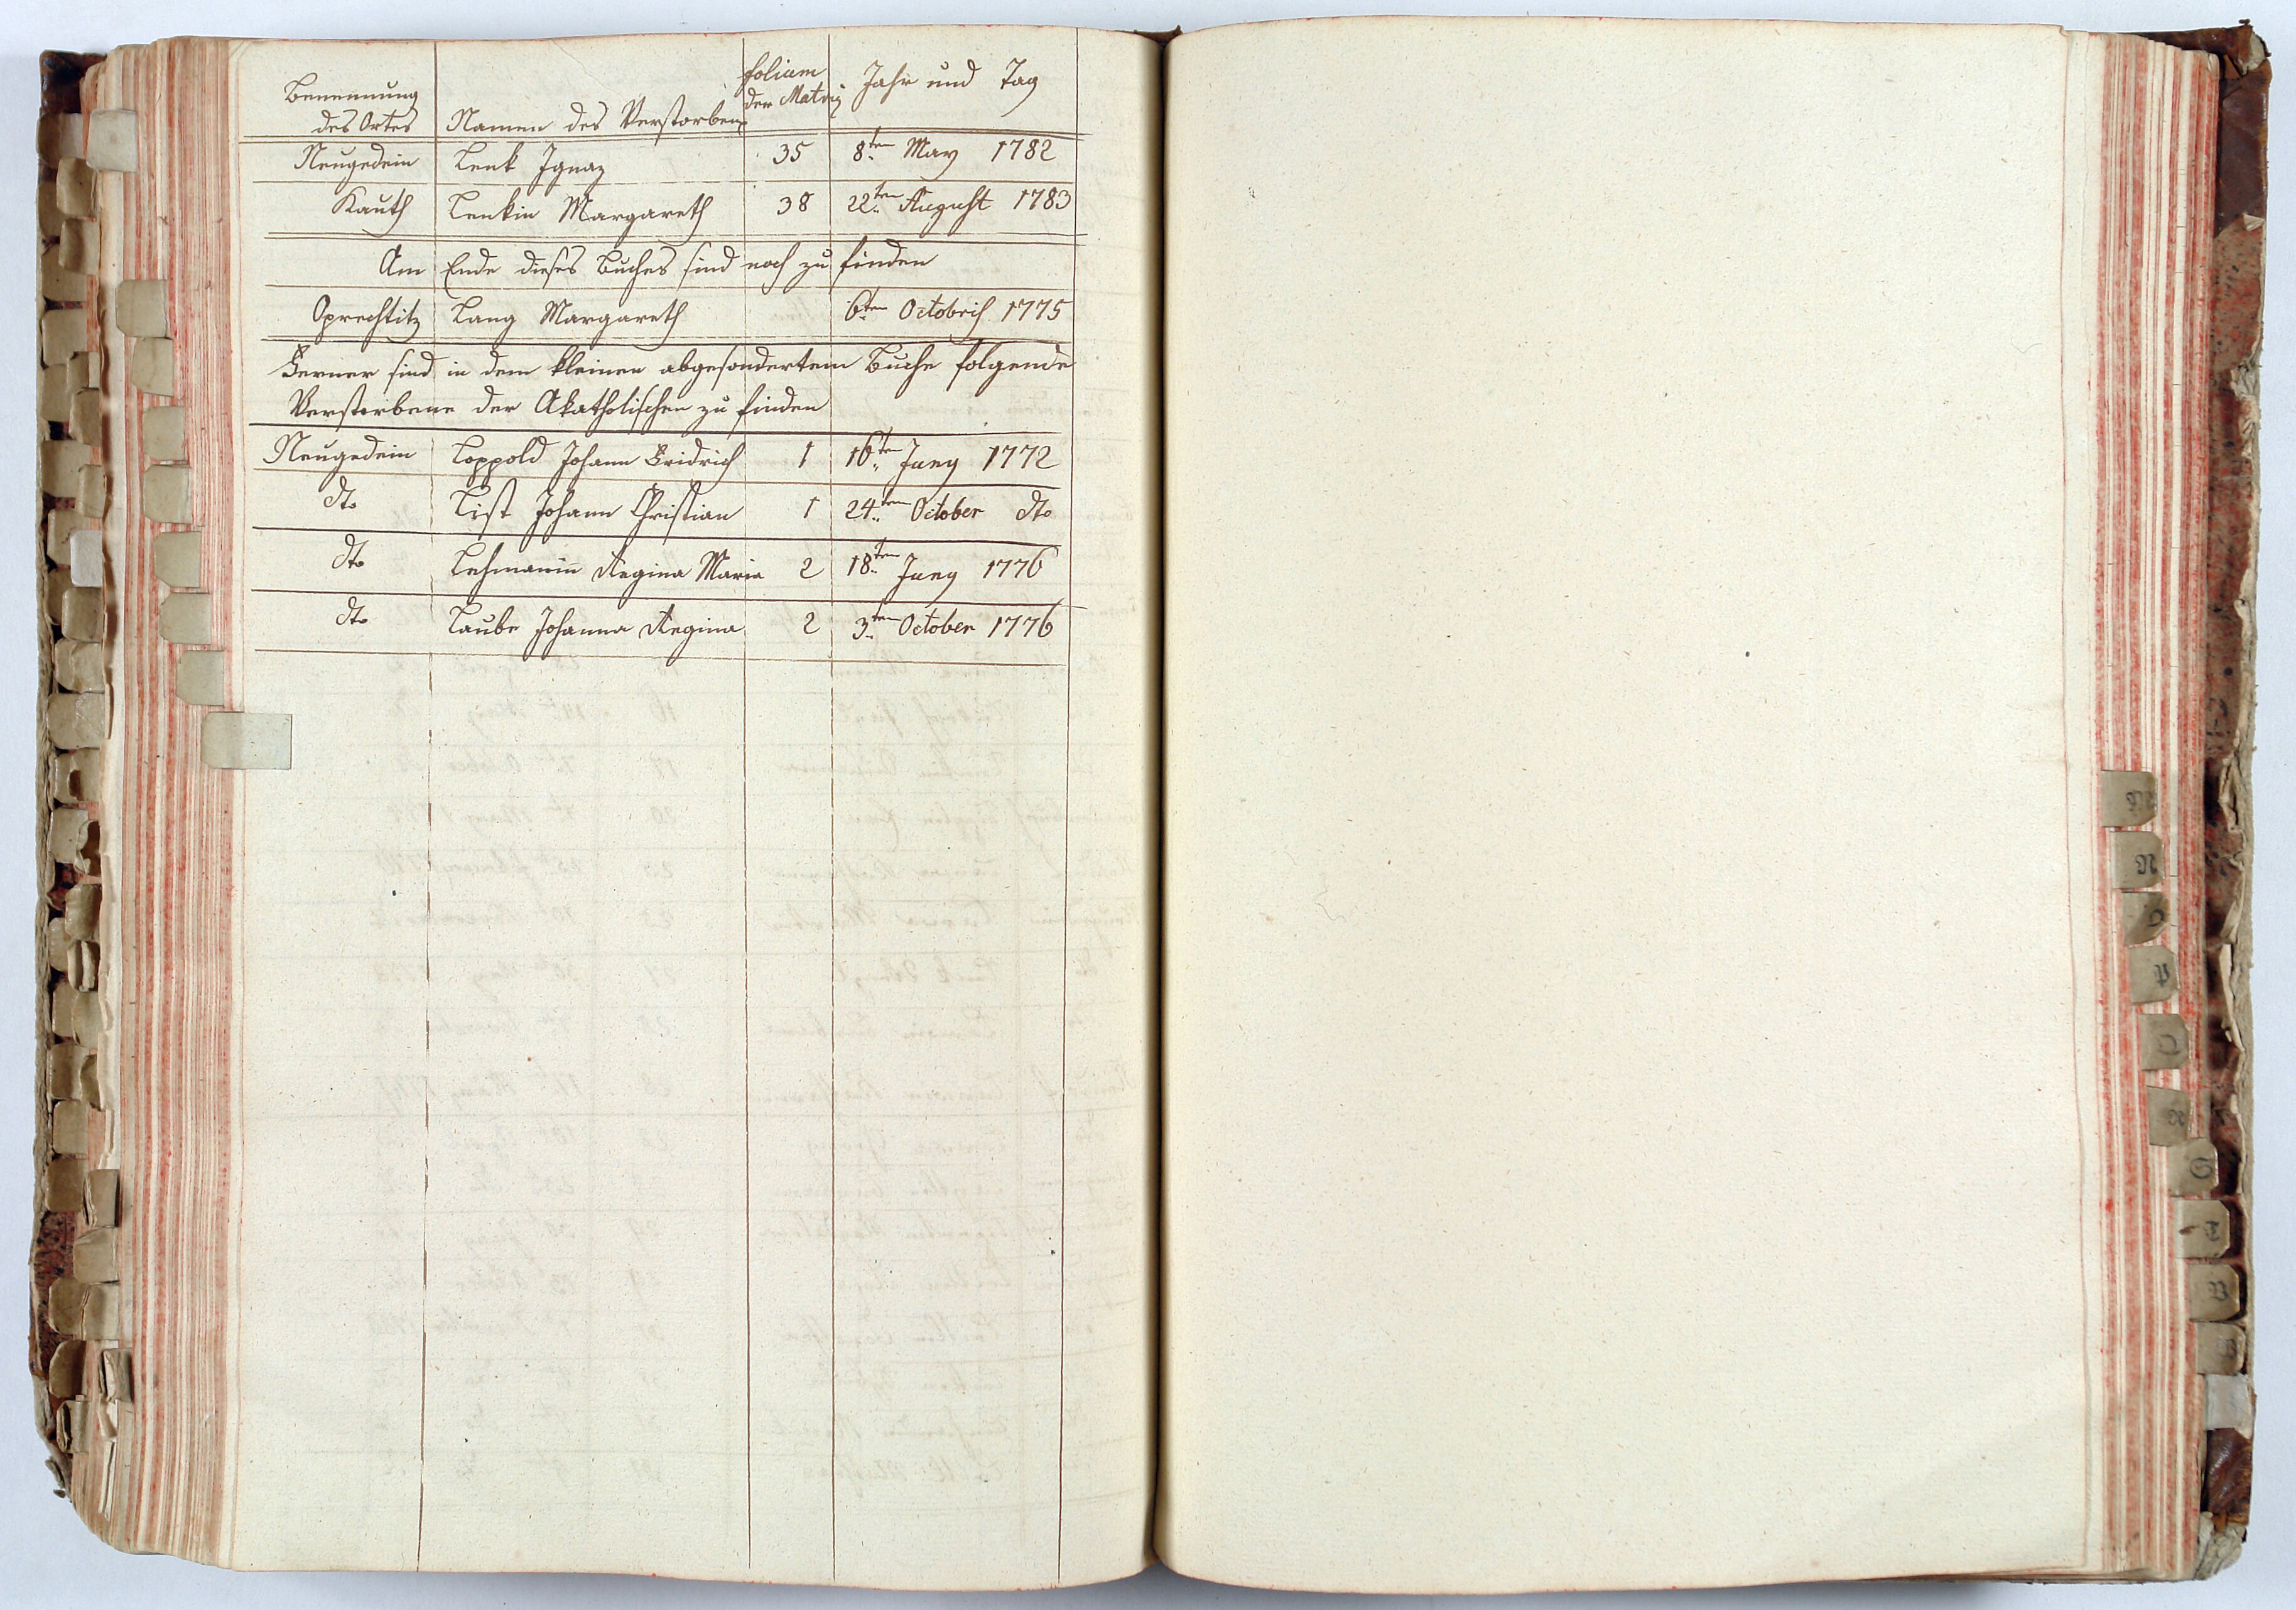 Benennung des Ortes | Namen des Verstorben | folium der Matrig | Jahr und Tag
Neugedein | Lenk Ignaz | 35 | 8ten May 1782
Kauth | Lenkin Margareth | 38 | 22ten August 1783
Am Ende dieses Buches sind noch zu finden
Oprechtitz | Lang Margareth | 6ten Octobris 1775
Ferner sind in dem kleinen abgesondertem Buche folgende
Verstorbene der Akatholischen zu finden
Neugedein | Loppold Johann Fridrich | 1 | 16ten Juny 1772
dto | List Johann Christian | 1 | 24ten October dto
dto | Lehmanin Regina Maria | 2 | 18ten Juny 1776
dto | Laube Johanna Regina | 2 | 3ten October 1776